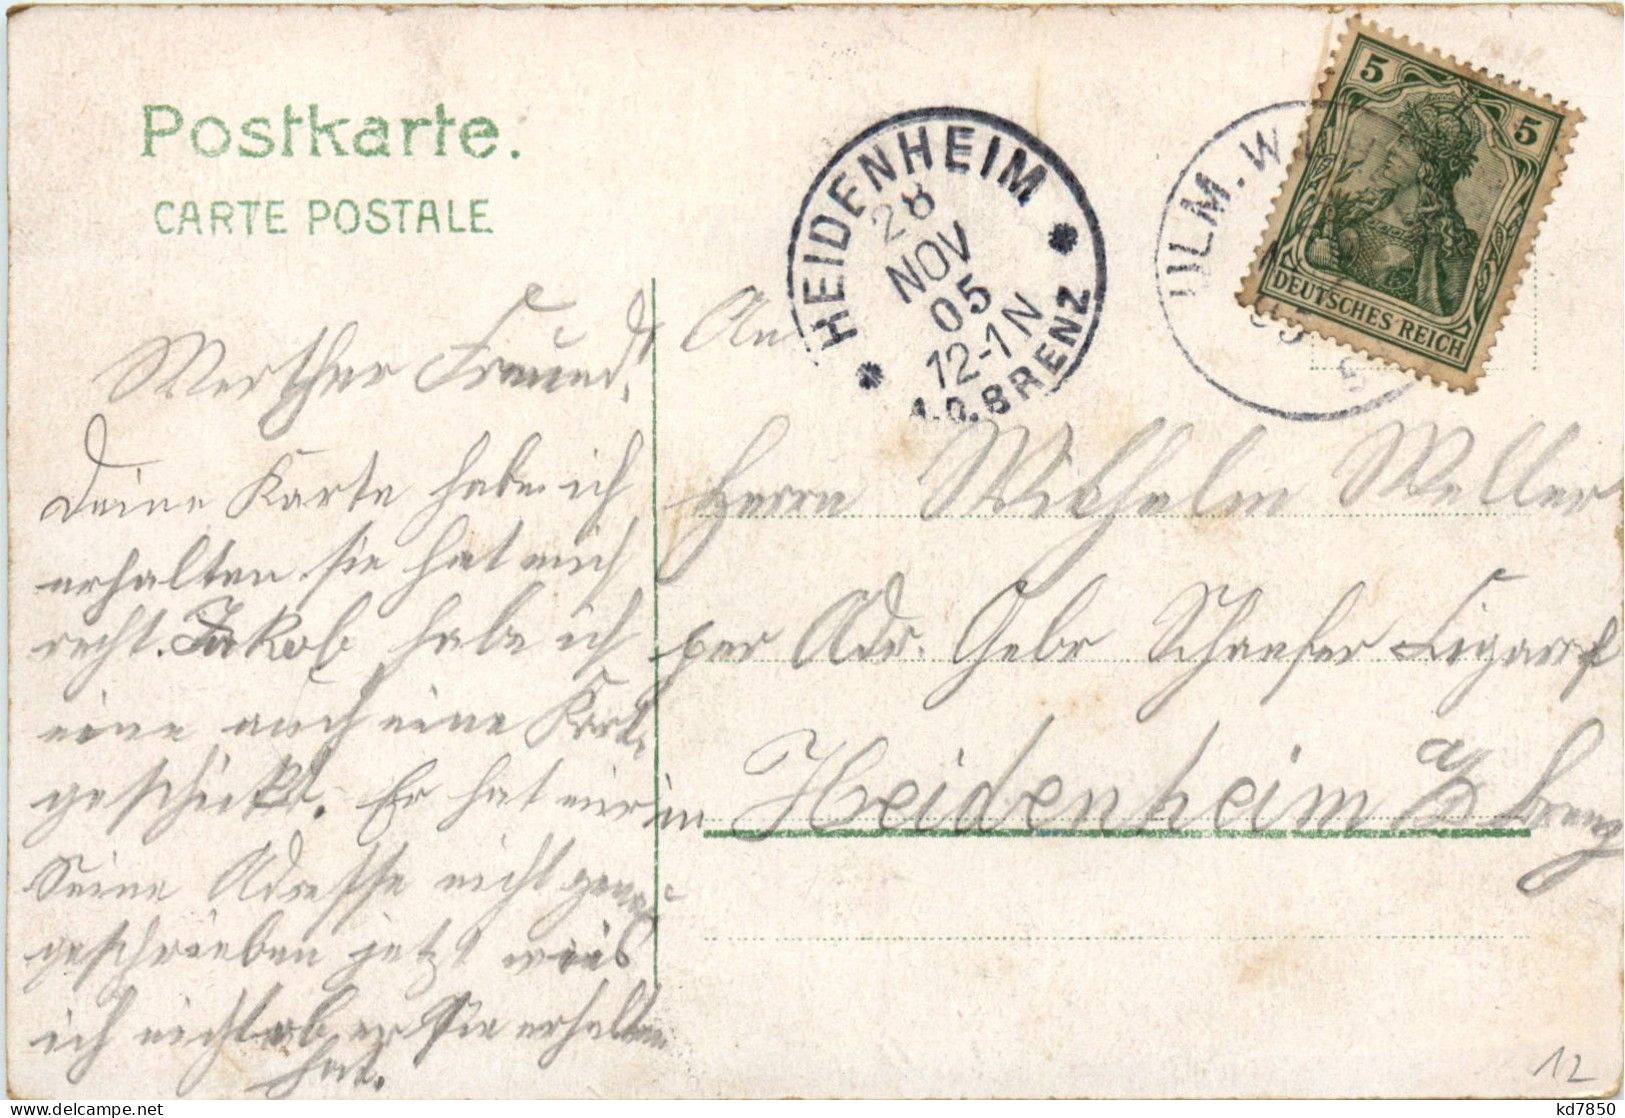 Postkarte.
CARTE POSTALE
HEIDENHEIM
28
NOV
05
12-1N
A.D.BRENZ
ULM. W
05
5
5
5
DEUTSCHES REICH
Werther Freund!
Deine Karte habe ich
erhalten. sie hat mich
recht. Jakob habe ich
eine auch eine Karte
geschickt. Er hat mir
Seine Adresse nicht genau
geschrieben jetzt weis
ich nicht ob er sie erhalten
hat.
An
Herrn Wilhelm Weller
per Adr. Gebr Schaefer Cigarrf
in Heidenheim a/ Brenz
12
kd7850